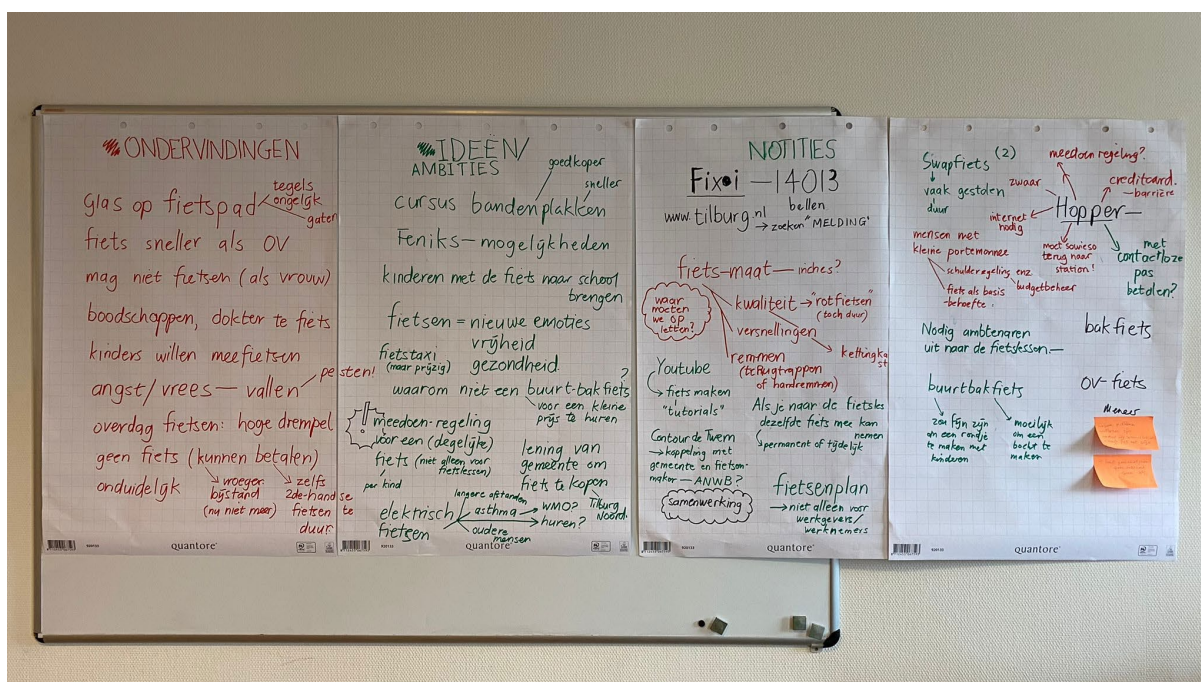 ONDERVINDINGEN
glas op fietspad
tegels
ongelijk
gaten
fiets sneller als OV
mag niet fietsen (als vrouw)
boodschappen, dokter te fiets
kinders willen meefietsen
angst/vrees — vallen
pesten!
overdag fietsen: hoge drempel
geen fiets (kunnen betalen)
onduidelijk
vroeger
bijstand
(nu niet meer)
zelfs
2de-handse
fietsen te
duur
IDEEËN/
AMBITIES
goedkoper
sneller
cursus bandenplakken
Feniks — mogelijkheden
kinderen met de fiets naar school
brengen
fietsen = nieuwe emoties
vrijheid
gezondheid
fietstaxi
(maar prijzig)
waarom niet een buurt-bakfiets?
voor een kleine
prijs te huren
!!
meedoen-regeling
voor een (degelijke)
fiets (niet alleen voor
fietslessen)
per kind
lening van
gemeente om
fiets te kopen
Tilburg
Noord.
elektrisch
fietsen
langere afstanden
asthma → WMO?
huren?
oudere
mensen
NOTITIES
Fixi — 14013
bellen
www.tilburg.nl
→ zoeken "MELDING"
fiets-maat — inches?
waar
moeten
we op
letten?
kwaliteit → "rotfietsen"
(toch duur)
versnellingen
kettingkast
remmen
(terugtrappen
of handremmen)
Youtube
fiets maken
"tutorials"
Als je naar de fietsles
dezelfde fiets mee kan
nemen
permanent of tijdelijk
Contour de Twern
→ koppeling met
gemeente en fietsen-
maker — ANWB?
samenwerking
fietsenplan
→ niet alleen voor
werkgevers/
werknemers
Swapfiets (2)
vaak gestolen
duur
meedoen regeling?
zwaar
creditcard.
— barrière
Hopper —
internet
nodig
moet sowieso
terug naar
station!
met
contactloze
pas
betalen?
mensen met
kleine portemonnee
schuldregeling enz
budgetbeheer
fiets als basis
-behoefte.
bakfiets
Nodig ambtenaren
uit naar de fietslessen —
OV-fiets
buurtbakfiets
zou fijn zijn
om een rondje
te maken met
kinderen
moeilijk
om een
bocht te
maken
quantore
quantore
quantore
quantore
920133
920133
920133
920133